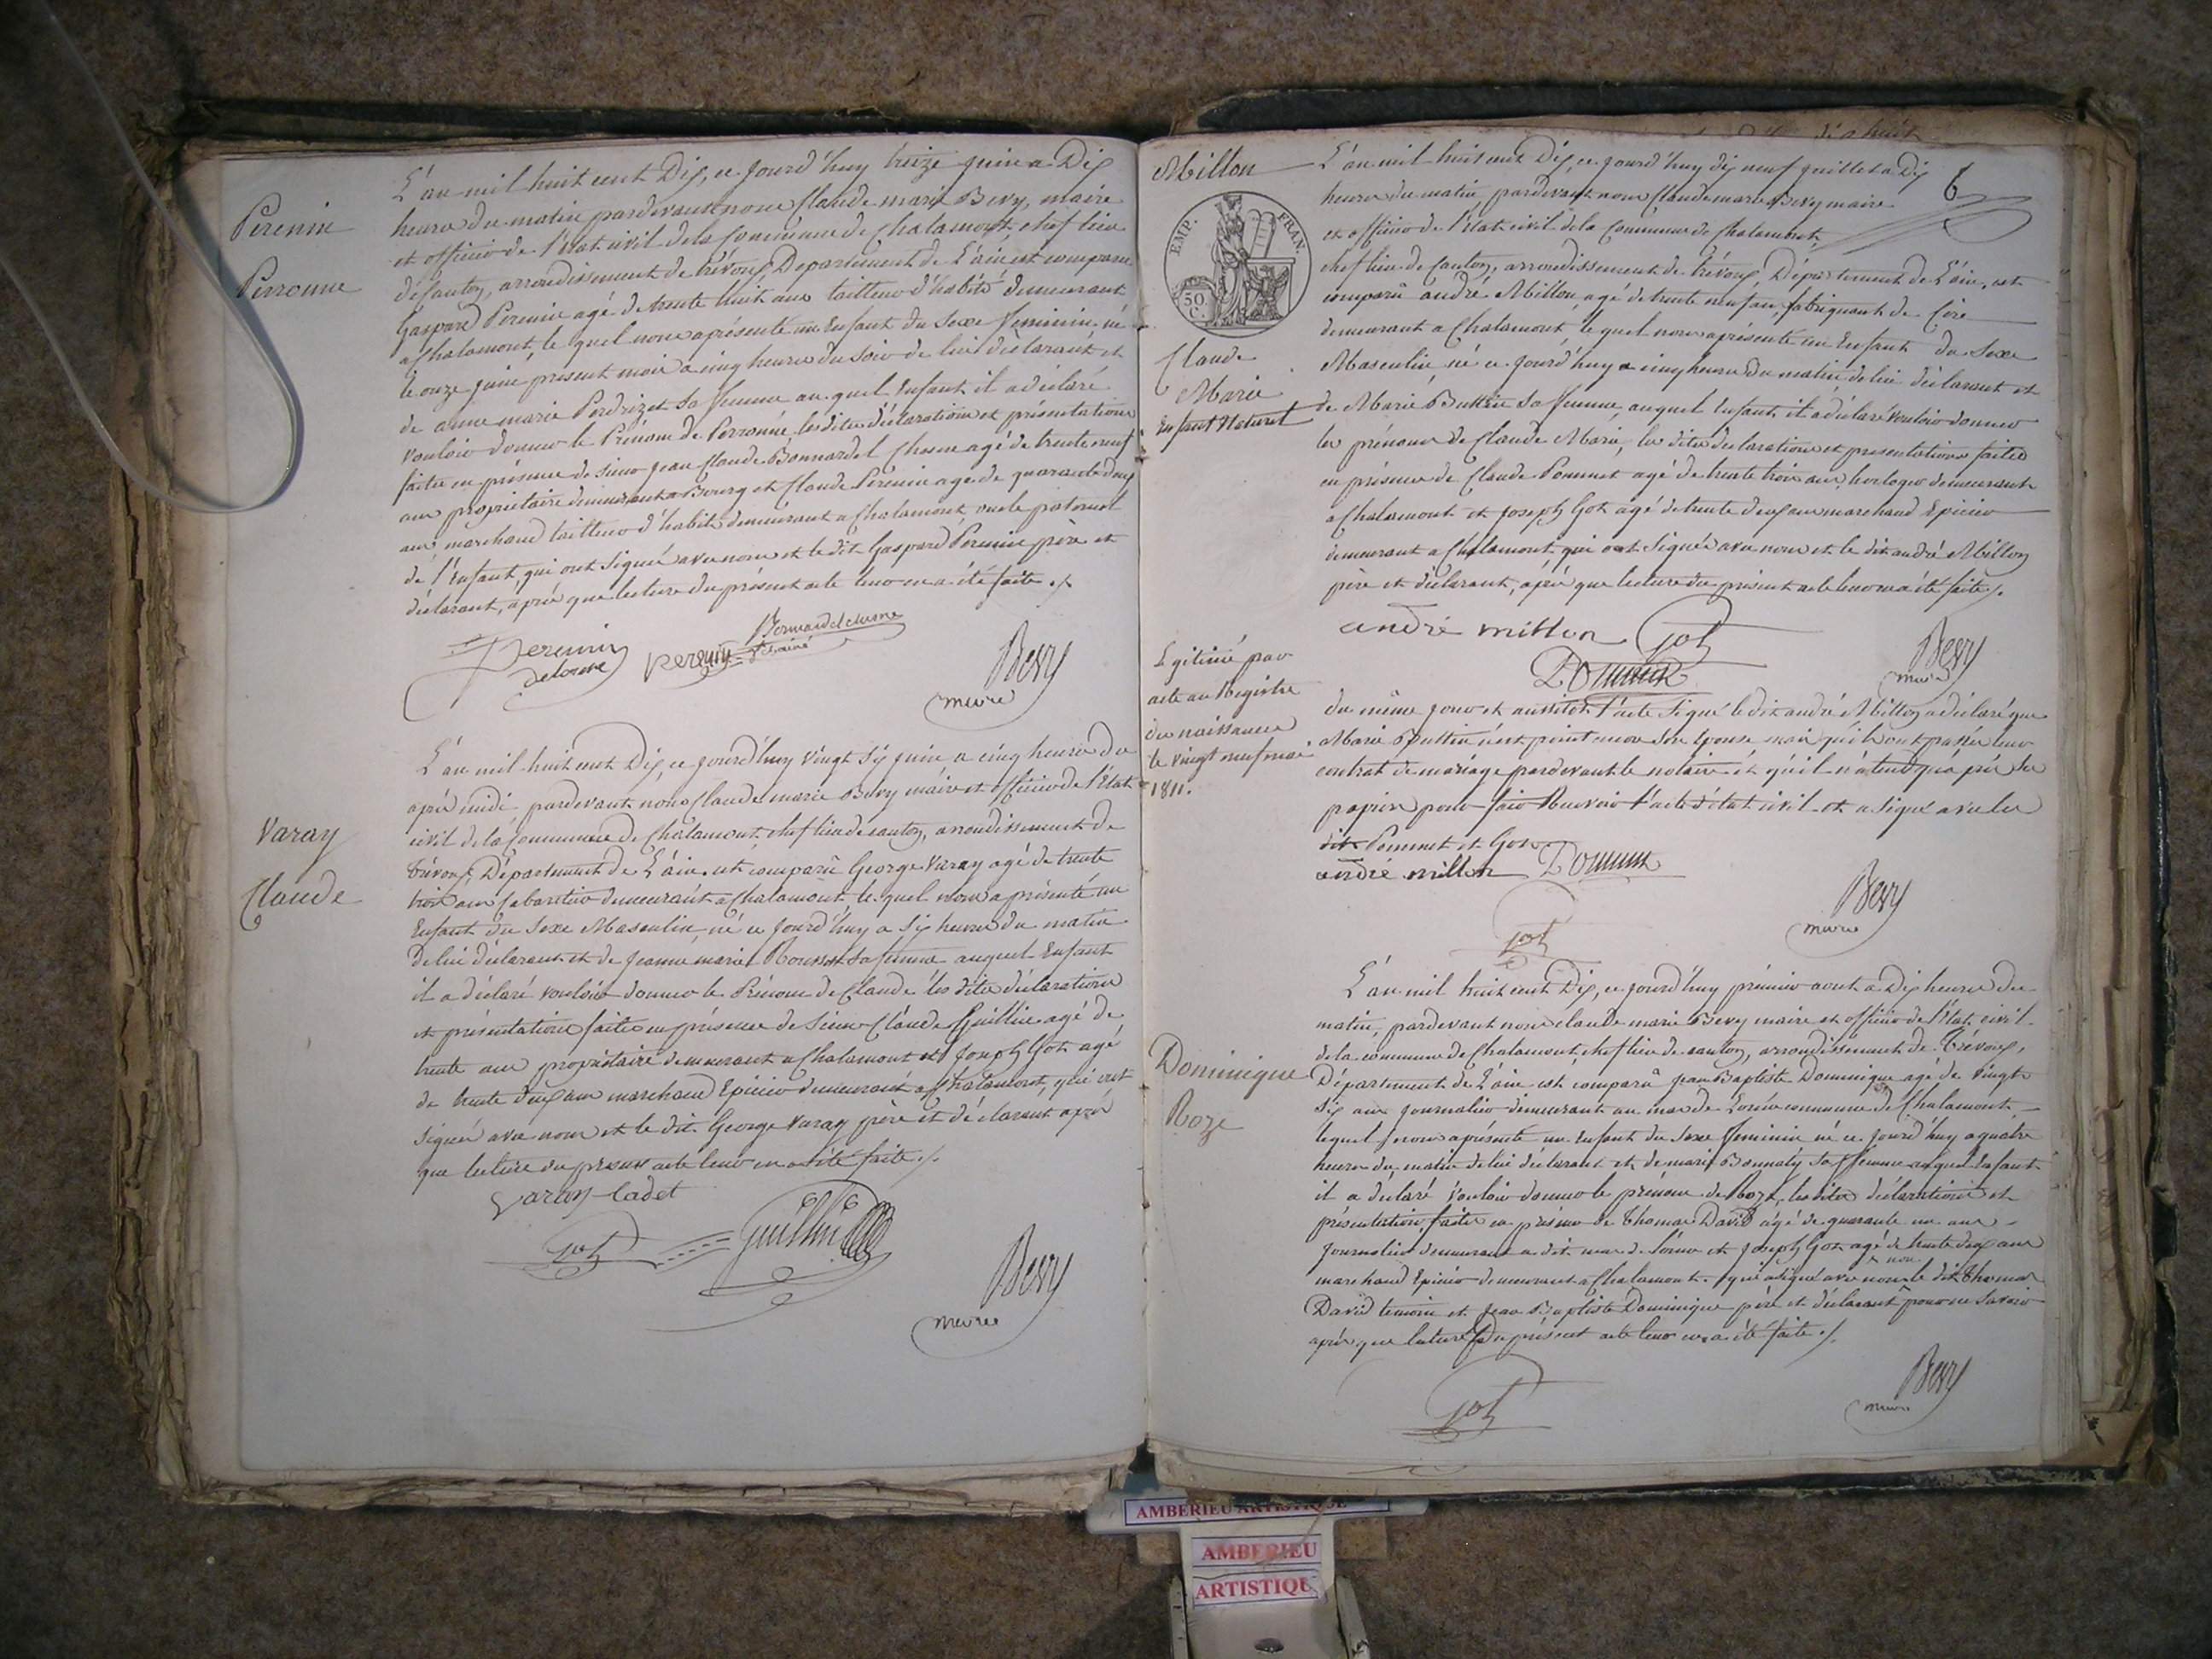 Perenin
Perronne
L'an mil huit cent Dix, ce jourd'huy treize juin a Dix
heures du matin pardevant nous Claude marie Bevy, maire
et officier de l'état civil dela Commune de Chalamont, chef lieu
de Canton, arrondissement de trévoux, Departement de L'ain est comparu
Gaspard Perenin agé de trente huit ans tailleur d'habits demeurant
a Chalamont, le quel nous a présenté un Enfant du Sexe feminin né
le onze juin present mois a cinq heures du Soir de lui déclarant et
de anne marie Perdrizet sa femme au quel Enfant il a déclaré
vouloir donner le Prénom de Perronne les dites déclaration et présentation
faites en présence de sieur jean Claude Bonnardel Chesne agé de trente neuf
ans propriétaire demeurant a Bourg et Claude Perenin agé de quarante deux
ans marchand tailleur d'habits demeurant a Chalamont oncle paternel
de l'Enfant, qui ont Signé avec nous et le dit Gaspard Perenin père et
déclarant, après que lecture du présent acte leur en a été faite ./.
Perenin
perenin
Bevy
maire
Varay
Claude
L'an mil huit cent Dix, ce jourd'huy vingt six juin a cinq heures du
après midi pardevant nous Claude marie Bevy maire et officier de l'état
civil de la Commune de Chalamont, chef lieu de canton, arrondissement de
trévoux, Département de L'ain est comparu George Varay agé de trente
trois ans Cabaretier demeurant a Chalamont, le quel nous a présenté un
Enfant du Sexe Masculin, né ce jourd'huy a six heures du matin
De lui déclarant et de jeanne marie Rousset sa femme auquel Enfant
il a déclaré vouloir donner le Prénom de Claude les dites déclaration
et présentation faites en présence de Sieur Claude Guillin agé de
trente ans propriétaire demeurant a Chalamont et joseph Got agé
de trente deux ans marchand Epicier demeurant a Chalamont, qui ont
Signé avec nous et le dit George Varay père et déclarant après
que lecture du présent acte leur en a été faite ./.
Varay Cadet
Got
Guillin
Bevy
maire
Millon
EMP. FRAN.
50 C.
Claude
Marie
Enfant Naturel
6
L'an mil huit cent Dix, ce jourd'huy dix neuf juillet a Dix
heures du matin, pardevant nous Claude marie Bevy maire
et officier de l'état civil de la Commune de Chalamont,
chef lieu de Canton, arrondissement de Trévoux, Département de L'ain, est
comparu andré Millon, agé de trente neuf ans, fabriquant de Cire
demeurant a Chalamont le quel nous a présenté un Enfant du Sexe
Masculin, né ce jourd'huy a cinq heures du matin de lui déclarant et
de Marie Buttin sa femme, auquel Enfant il a déclaré vouloir donner
les prénoms de Claude Marie, les dites déclaration et presentation faites
en présence de Claude Pommet agé de trente trois ans, horloger demeurant
a Chalamont et joseph Got agé de trente deux ans marchand Epicier
demeurant a Chalamont, qui ont Signé avec nous et le dit andré Millon
père et déclarant, après que lecture du présent acte leur en a été faite ./.
andré millon Got
Pommet
Bevy
maire
Légitimé par
acte au Registre
de naissance
le vingt neuf mai
1811.
du même jour et aussitôt l'acte Signé le dit andré Millon a déclaré que
Marie Buttin n'est point encore son Epouse mais qu'ils ont passés leur
contrat de mariage pardevant le notaire et qu'il n'attend que
papiers pour faire Recevoir l'acte d'état civil et a signé avec les
dits Pommet et Got
andré millon Pommet
Got
Bevy
maire
Dominique
Roze
L'an mil huit cent Dix, ce jourd'huy premier aout a Dix heures du
matin, pardevant nous claude marie Bevy maire et officier de l'état civil
de la commune de Chalamont, chef lieu de canton, arrondissement de Trévoux,
Département de L'ain est comparu jean Baptiste Dominique agé de vingt
six ans journalier demeurant au mas de commune de Chalamont,
lequel nous a présenté un Enfant du Sexe feminin né ce jourd'huy a quatre
heures du matin de lui déclarant et de marie sa femme auquel Enfant
il a déclaré vouloir donner le prénom de Roze, les dites déclaration et
présentation faites en présence de Thomas David agé de quarante un ans
journalier demeurant au dit mas de et joseph Got agé de trente deux ans
marchand Epicier demeurant a Chalamont. qui a signé avec nous, non le dit Thomas
David temoin et jean Baptiste Dominique père et déclarant pour ne savoir
après que lecture Du présent acte leur en a été faite ./.
Got
Bevy
maire
AMBERIEU ARTISTIQUE
AMBERIEU
ARTISTIQUE